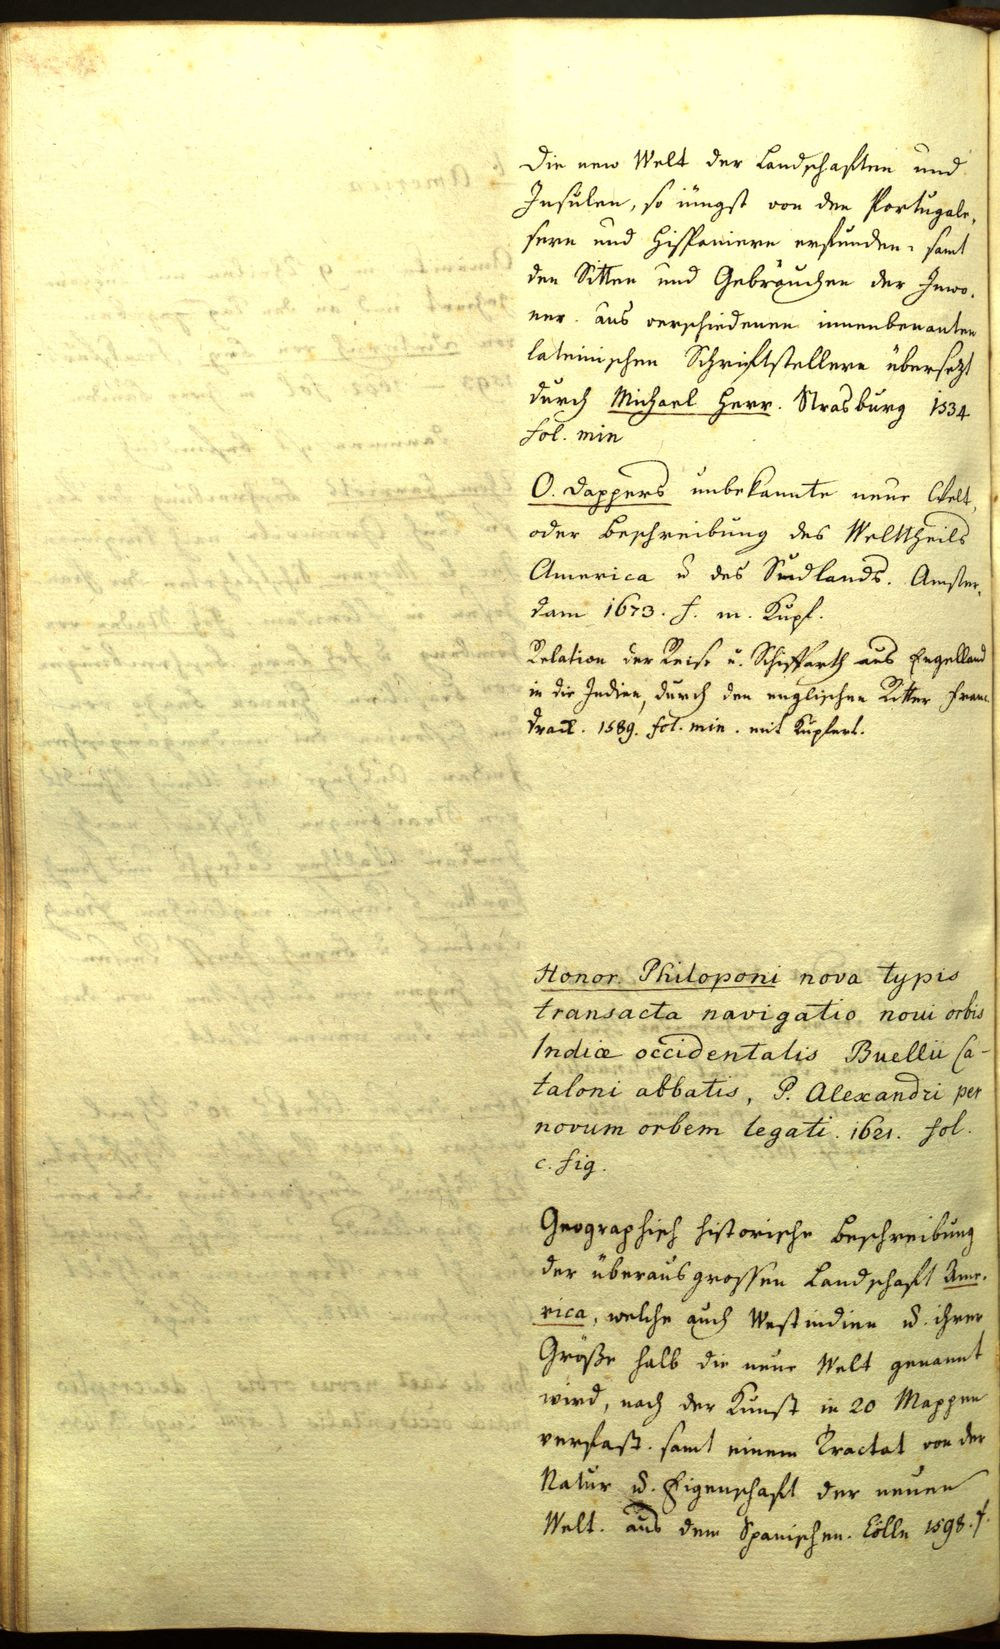 Die new Welt der Landschaften und
Insulen, so iüngst von den Portugale,
sern und Hispaniern erfunden. samt
den Sitten und Gebräuchen der Inwo,
ner. aus verschiedenen innenbenanten
lateinischen Schriftstellern übersetzt
durch Michael Herr. Strasburg 1534
fol. min
O. Dappers unbekannte neue Welt,
oder Beschreibung des Welttheils
America u des Sudlands. Amster,
dam 1673. f. m. Kupf.
Relation der Reise u. Schiffarth aus Engelland
in die Indien, durch den englischen Ritter Franc.
Drack. 1589. fol. min. mit Kupfert.
Honor. Philoponi nova typis
transacta navigatio novi orbis
Indiæ occidentalis Buellii Ca-
taloni abbatis, P. Alexandri per
novum orbem legati. 1621. fol.
c. fig.
Geographisch historische Beschreibung
der überausgrossen Landschaft Ame,
rica, welche auch Westindien u. ihrer
Größe halb die neue Welt genannt
wird, nach der Kunst in 20 Mappen
verfast. samt einem Tractat von der
Natur u. Eigenschaft der neuen
Welt. aus dem Spanischen. Cölln 1598. f.